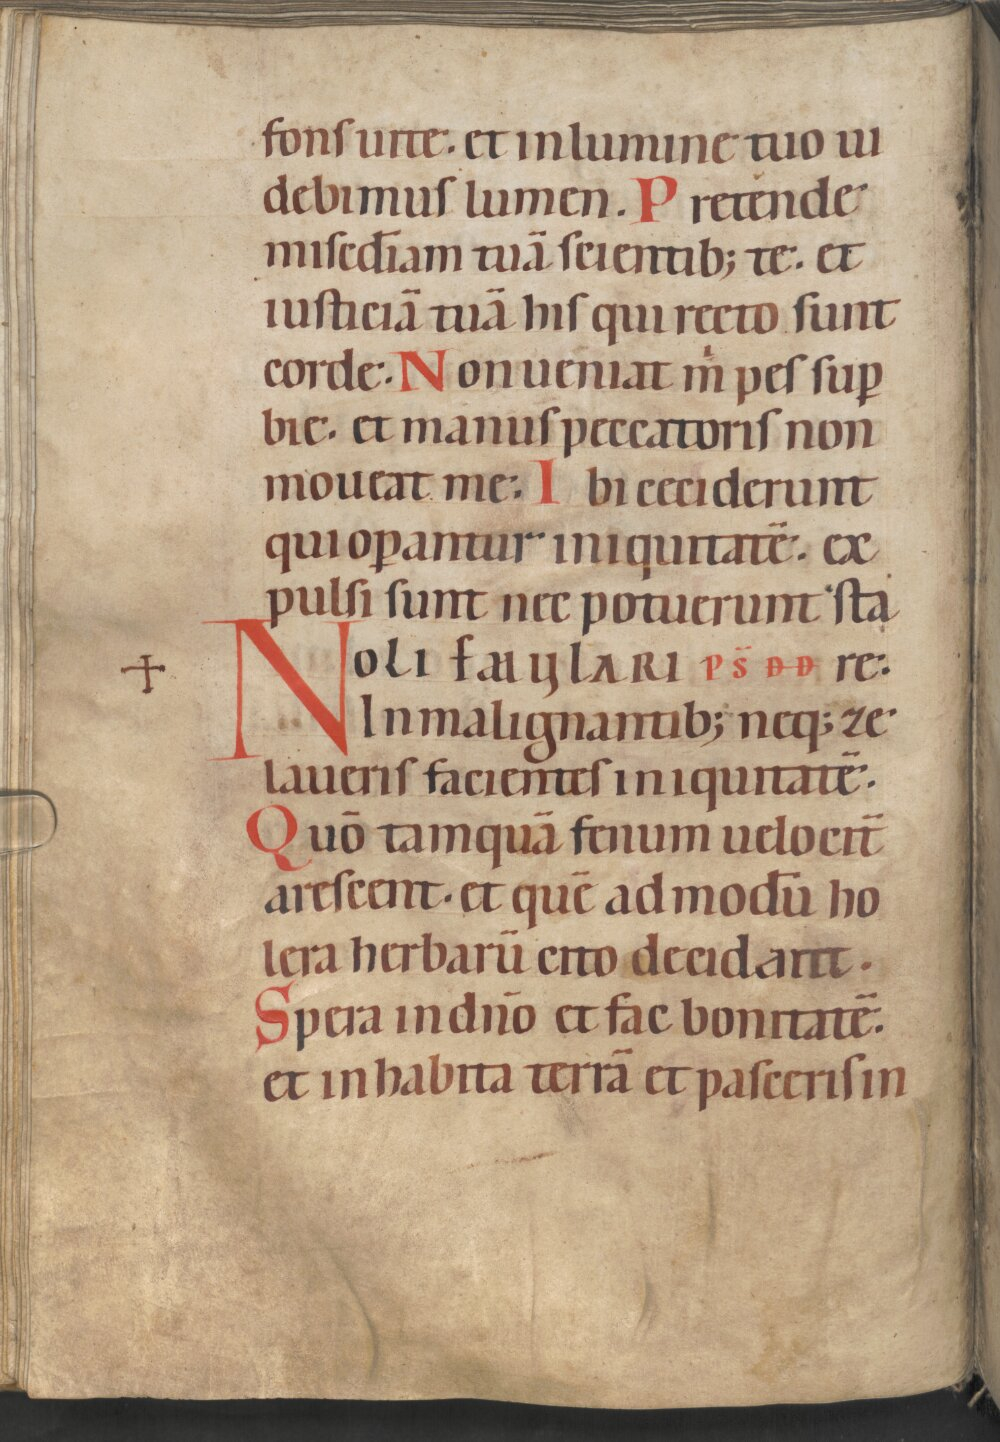 fonſ uite. et in lumine tuo ui
debimus lumen. Pretende
miſediam tuā ſcientib; te. et
iuſticiā tuā hiſ qui recto ſunt
corde. Non ueniat m̍ peſ ſuꝑ
bie. et manuſ peccatoriſ non
moueat me. Ibi ceciderunt
qui oꝑantur iniquitatē. ex
pulſi ſunt nec potuerunt ſta
NOLI EMULARI PS̄ DD re.
In malignantib; neq; ze
laueriſ facienteſ iniquitatē.
Quō tamquā fenum uelocit̄
areſcent. et quē ad modū ho
lera herbarū cito decidant.
Spera in dn̄o et fac bonitatē.
et inhabita terrā et paſceriſ in